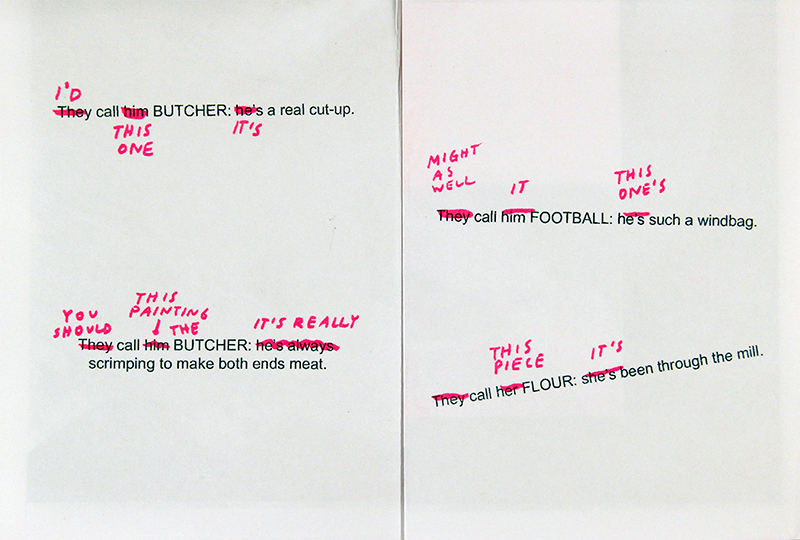 I'D
They call him BUTCHER: he's a real cut-up.
THIS IT'S
ONE
YOU THIS
SHOULD PAINTING IT'S REALLY
↓ THE
They call him BUTCHER: he's always
scrimping to make both ends meat.
MIGHT
AS IT THIS
WELL ONE'S
They call him FOOTBALL: he's such a windbag.
THIS IT'S
PIECE
They call her FLOUR: she's been through the mill.